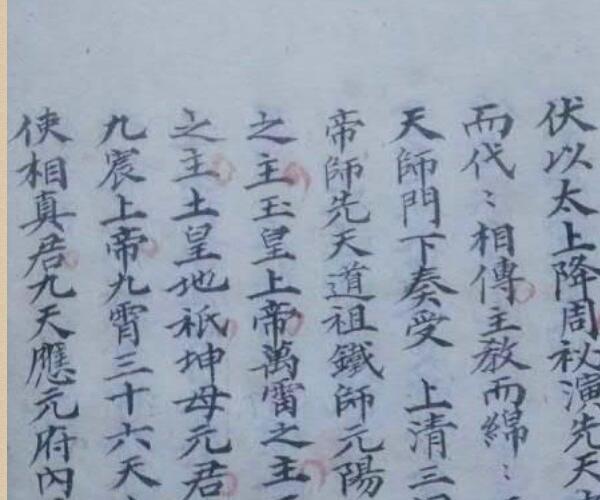 伏以太上降周祕演先天
而代〻相傳主教而綿〻
天師門下奏受　上清三
帝師先天道祖鐵師元陽
之主玉皇上帝萬雷之主
之主土皇地祇坤母元君
九宸上帝九霄三十六天
使相真君九天應元府內